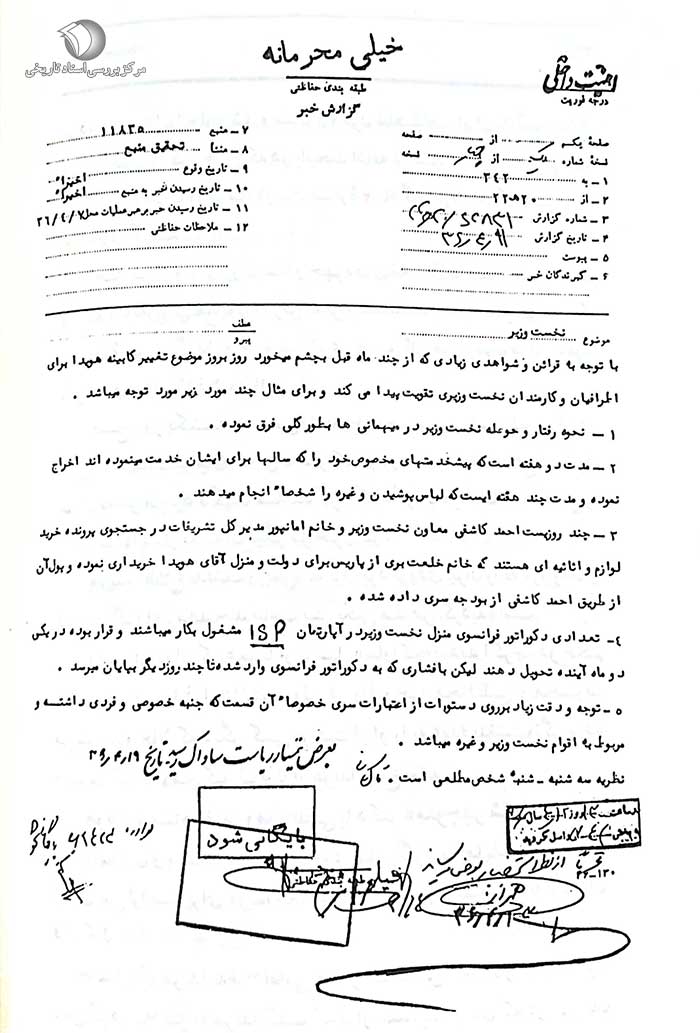 مرکز بررسی اسناد تاریخی
خیلی محرمانه
طبقه بندی حفاظتی
گزارش خبر
درجه فوریت
صفحه یکم از صفحه
نسخه شماره از نسخه
۱ – به ۳۴۲
۲ – از ۲۰ه۲۲
۳ – شماره گزارش
۴ – تاریخ گزارش
۵ – پیوست
۶ – گیرندگان خبر
۷ – منبع ۱۱۸۳۵
۸ – منشأ تحقیق منبع
۹ – تاریخ وقوع اخیراً
۱۰ – تاریخ رسیدن خبر به منبع اخیراً
۱۱ – تاریخ رسیدن خبر برهبر عملیات محل ۳۶/۴/۷
۱۲ – ملاحظات حفاظتی
موضوع نخست وزیر
عطف
پیرو
با توجه به قرائن و شواهدی زیادی که از چند ماه قبل بچشم میخورد روز بروز موضوع تغییر کابینه هویدا برای
اطرافیان و کارمندان نخست وزیری تقویت پیدا می کند و برای مثال چند مورد زیر مورد توجه میباشد .
۱ – نحوه رفتار و حوصله نخست وزیر در میهمانی ها بطور کلی فرق نموده .
۲ – مدت دو هفته است که پیشخدمتهای مخصوص خود را که سالها برای ایشان خدمت مینموده اند اخراج
نموده و مدت چند هفته ایست که لباس پوشیدن و غیره را شخصاً انجام میدهند .
۳ – چند روزیست احمد کاشفی معاون نخست وزیر و خانم امانپور مدیر کل تشریفات در جستجوی پرونده خرید
لوازم و اثاثیه ای هستند که خانم خلعت بری از پاریس برای دولت و منزل آقای هویدا خریداری نموده و پول آن
از طریق احمد کاشفی از بودجه سری داده شده .
۴– تعدادی دکوراتور فرانسوی منزل نخست وزیر در آپارتمان ISP مشغول بکار میباشند و قرار بوده در یکی
دو ماه آینده تحویل دهند لیکن با فشاری که به دکوراتور فرانسوی وارد شده تا چند روز دیگر بپایان میرسد .
۵ – توجه و دقت زیاد بر روی دستورات از اعتبارات سری خصوصاً آن قسمت که جنبه خصوصی و فردی داشته و
مربوط به اقوام نخست وزیر و غیره میباشد .
بعرض تیمسار ریاست ساواک رسید تاریخ ۳۶٫۴٫۱۹
نظریه سه شنبه – شنبه شخص مطلعی است .
بایگانی شود
خیلی محرمانه
طبقه بندی حفاظتی